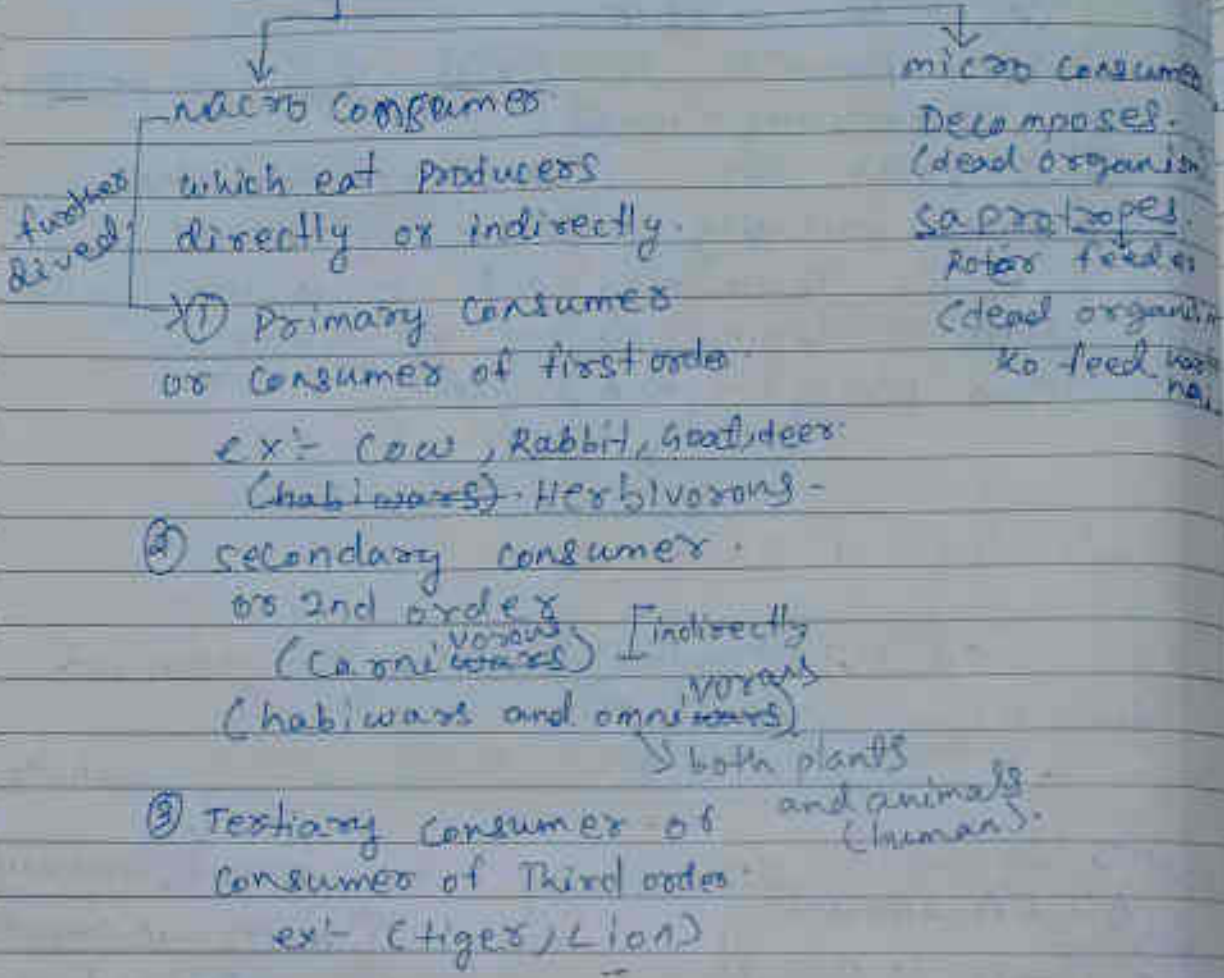 macro consumer
which eat producers
directly or indirectly.
further
dived
① Primary consumer
or consumer of first order.
ex:- Cow, Rabbit, Goat, deer.
(habiwars). Herbivorous -
② secondary consumer.
or 2nd order
(carniwars) vorous [indirectly
(habiwars and omniwars) vorous
↘ both plants
and animals.
(human).
③ Tertiary consumer or
consumer of Third order.
ex:- (tiger, Lion)
micro consumer
Decomposes.
(dead organism
saprotropes.
feeder
(dead
ko feed
hai.